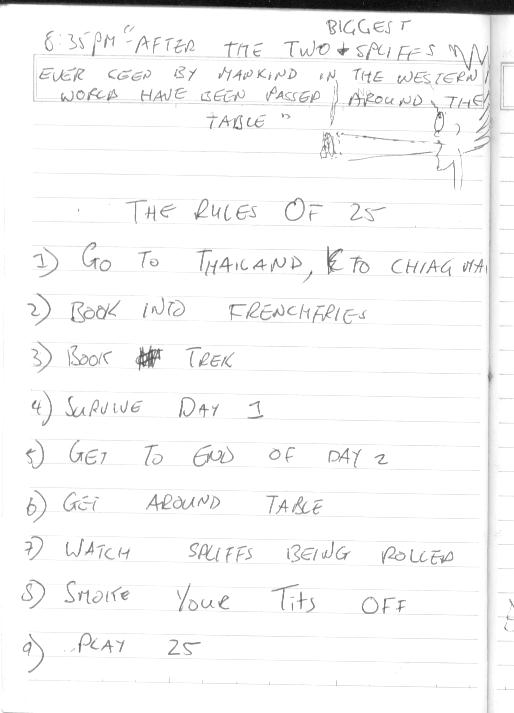 BIGGEST
8:35PM "AFTER THE TWO SPLIFFS
EVER SEEN BY MANKIND IN THE WESTERN
WORLD HAVE BEEN PASSED AROUND THE
TABLE"
THE RULES OF 25
1) GO TO THAILAND, & TO CHIAG MAI
2) BOOK INTO FRENCHFRIES
3) BOOK TREK
4) SURVIVE DAY 1
5) GET TO END OF DAY 2
6) GET AROUND TABLE
7) WATCH SPLIFFS BEING ROLLED
8) SMOKE YOUR TITS OFF
9) PLAY 25